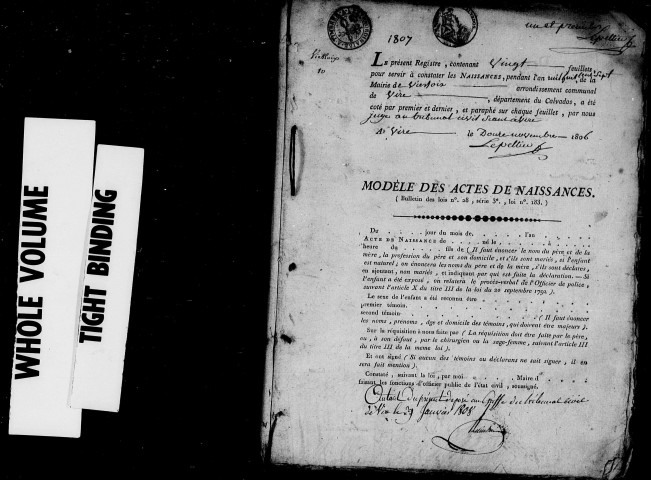 WHOLE VOLUME
TIGHT BINDING
1807
un et premier
Lepelletier
LE présent Registre, contenant Vingt feuillets,
pour servir à constater les NAISSANCES, pendant l'an mil huit cent sept de la
Mairie de Viessoix arrondissement communal
de Vire, département du Calvados, a été
coté par premier et dernier, et paraphé sur chaque feuillet, par nous
juge au tribunal civil séant à Vire
A Vire le Douze novembre 1806
MODÈLE DES ACTES DE NAISSANCES.
( Bulletin des lois n°. 28, série 3e., loi n°. 183. )
Du . . . . . jour du mois de . . . . . . l'an . . . . .
ACTE DE NAISSANCE de . . . . . né le . . . . . à . . . .
heure du . . . . . fils de ( Il faut énoncer le nom du père et de la
mère, la profession du père et son domicile, et s'ils sont mariés, et l'enfant
est naturel; on énoncera les noms du père et de la mère, s'ils sont déclarés,
en ajoutant, non mariés, et indiquant par qui est faite la déclaration. — Si
l'enfant a été exposé, on relatera le procès-verbal de l'Officier de police,
suivant l'article X du titre III de la loi du 20 septembre 1792.)
Le sexe de l'enfant a été reconnu être . . . . .
premier témoin. . . . . .
second témoin . . . . . . ( Il faut énoncer
les noms, prénoms, âge et domicile des témoins, qui doivent être majeurs ).
Sur la réquisition à nous faite par ( La réquisition doit être faite par le père,
ou, à son défaut, par le chirurgien ou la sage-femme, suivant l'article III
du titre III de la même loi ).
Et ont signé ( Si aucun des témoins ou déclarans ne sait signer, il en
sera fait mention ).
Constaté, suivant la loi, par moi . . . . . Maire d . . . . .
faisant les fonctions d'officier public de l'état civil, soussigné.
du présent déposé au Greffe du tribunal civil
de Vire le 29 janvier 1808